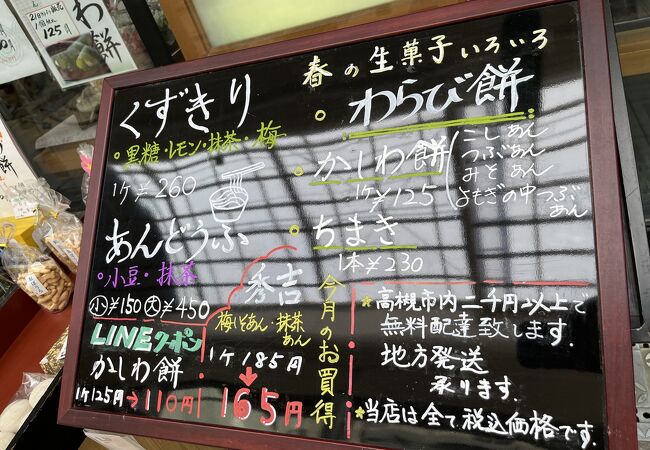 春の生菓子いろいろ
くずきり
・黒糖・レモン・抹茶・梅
1ケ¥260
あんどうふ
・小豆・抹茶
小¥150 大¥450
LINEクーポン
かしわ餅
1ケ125円→110円
わらび餅
かしわ餅
1ケ¥125
こしあん
つぶあん
みそあん
よもぎの中つぶ
あん
ちまき
1本¥230
秀吉
梅しそあん・抹茶
あん
1ケ185円
165円
今月のお買得
★高槻市内二千円以上で
無料配達致します.
地方発送
承ります.
★当店は全て税込価格です.
わ餅
125円